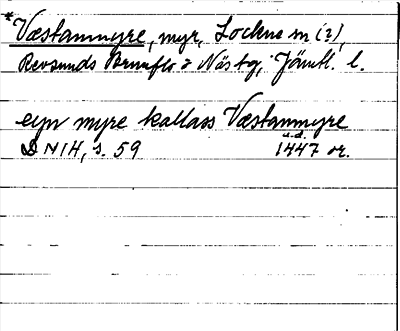 *Væstanmyre, myr, Lockne sn (?),
Revsunds Brunflo o Näs tg, Jämtl. l.
eyn myre kallass Væstanmyre
u.d.
DN 14, s. 59 1447 or.